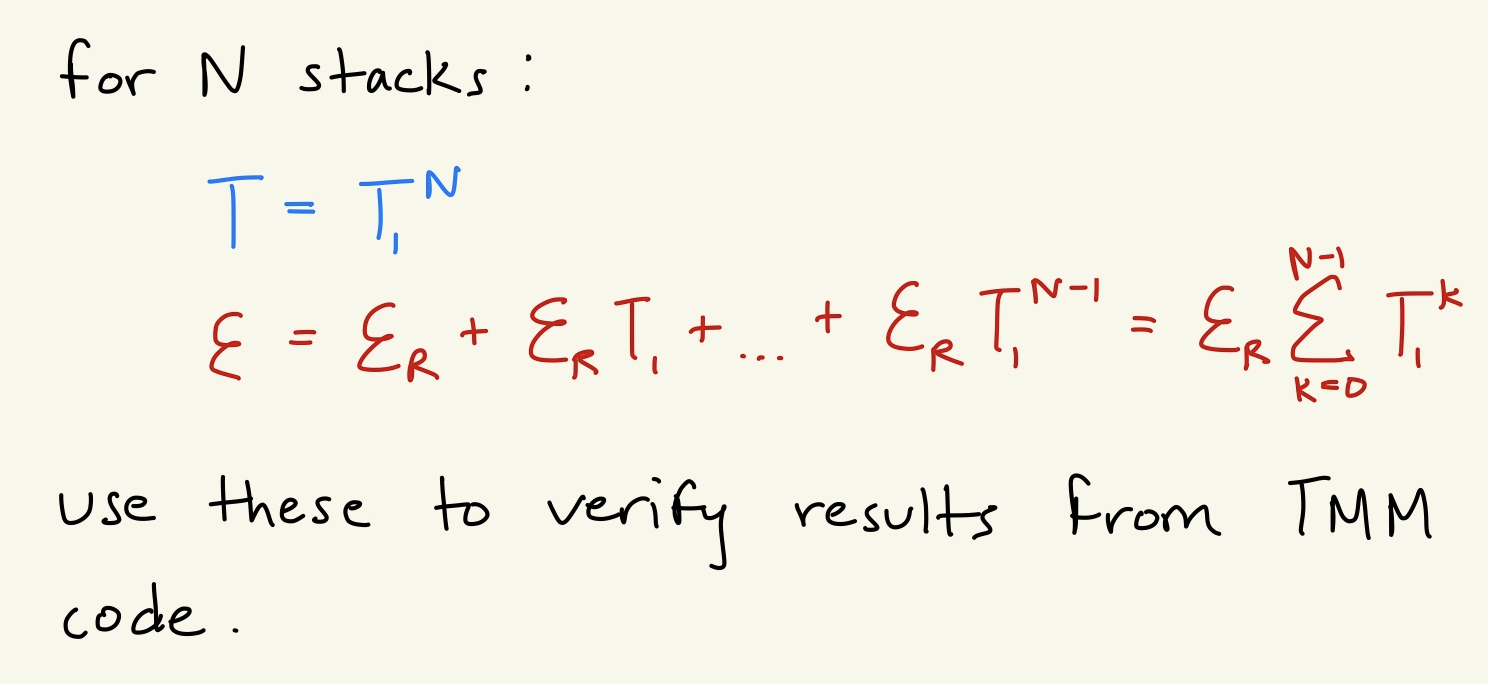 for N stacks:
T = T₁ᴺ
Ɛ = Ɛ_R + Ɛ_R T₁ + ... + Ɛ_R T₁^{N-1} = Ɛ_R ∑_{k=0}^{N-1} T₁^k
use these to verify results from TMM
code.